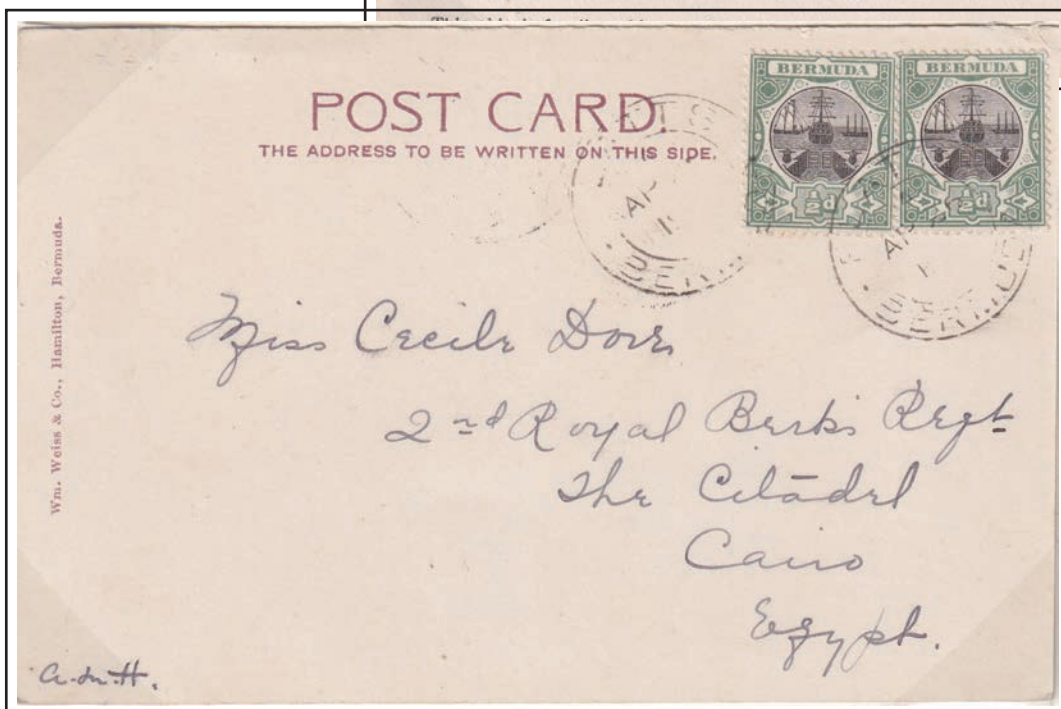 POST CARD.
THE ADDRESS TO BE WRITTEN ON THIS SIDE.
BERMUDA
BERMUDA
½d
½d
BERMUD
Wm. Weiss & Co., Hamilton, Bermuda.
Miss Cecile
2nd Royal Berks Regt
The Citadel
Cairo
Egypt.